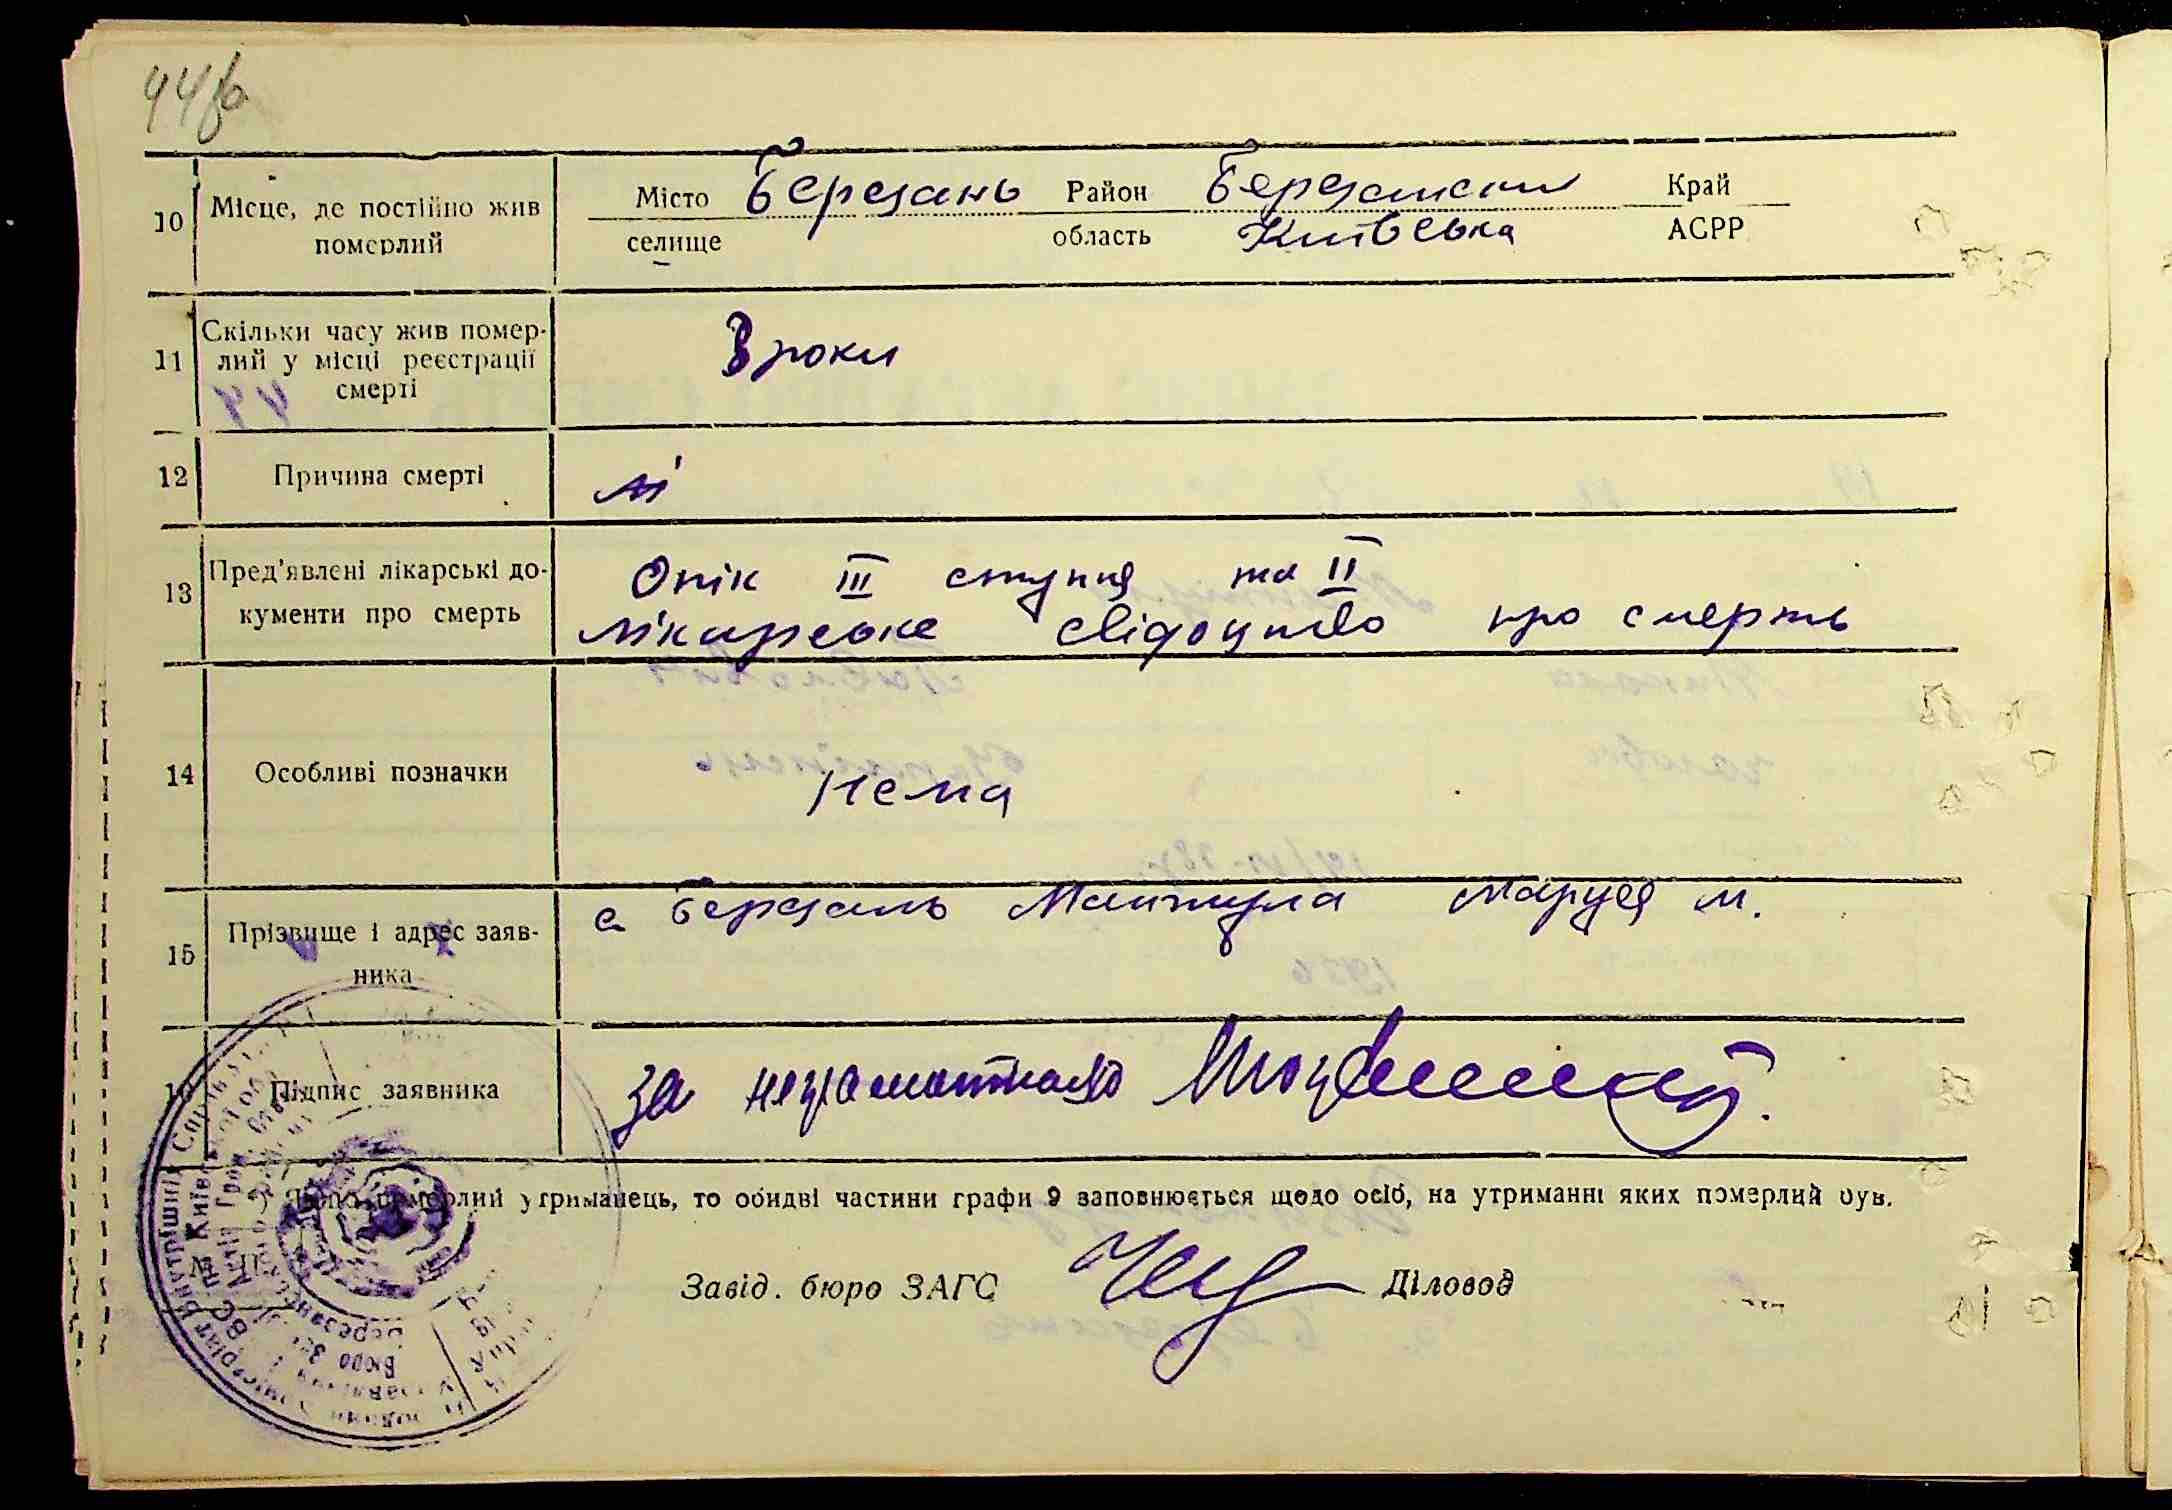 44
10 Місце, де постійно жив померлий
Місто Березань Район Березанский Край
селище область Київська АСРР
11 Скільки часу жив помер-
лий у місці реєстрації
смерті
3 роки
12 Причина смерті
13 Пред'явлені лікарські до-
кументи про смерть
Опік III ступня та II
лікарське свідоцтво про смерть
14 Особливі позначки
Нема
15 Прізвище і адрес заяв-
ника
с Березань Мантула Маруся М.
16 Підпис заявника
за неграмотного
Якщо померлий утриманець, то обидві частини графи 9 заповнюється щодо осіб, на утриманні яких померлий був.
Завід. бюро ЗАГС Діловод